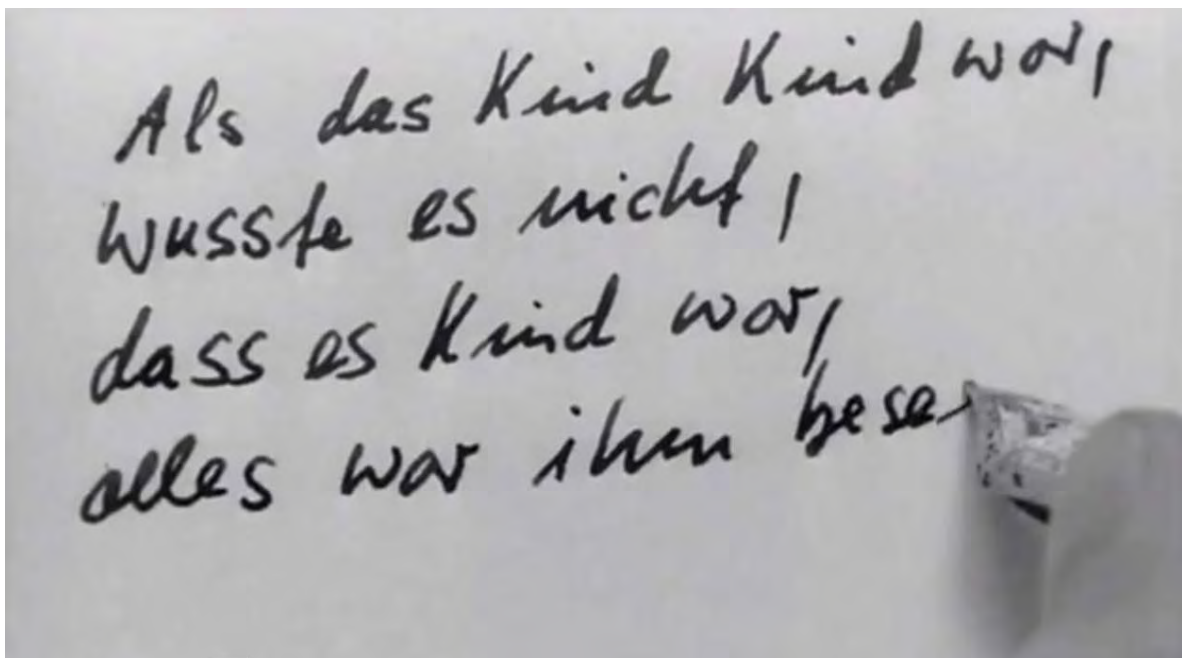 Als das Kind Kind war,
wusste es nicht,
dass es Kind war,
alles war ihm bese